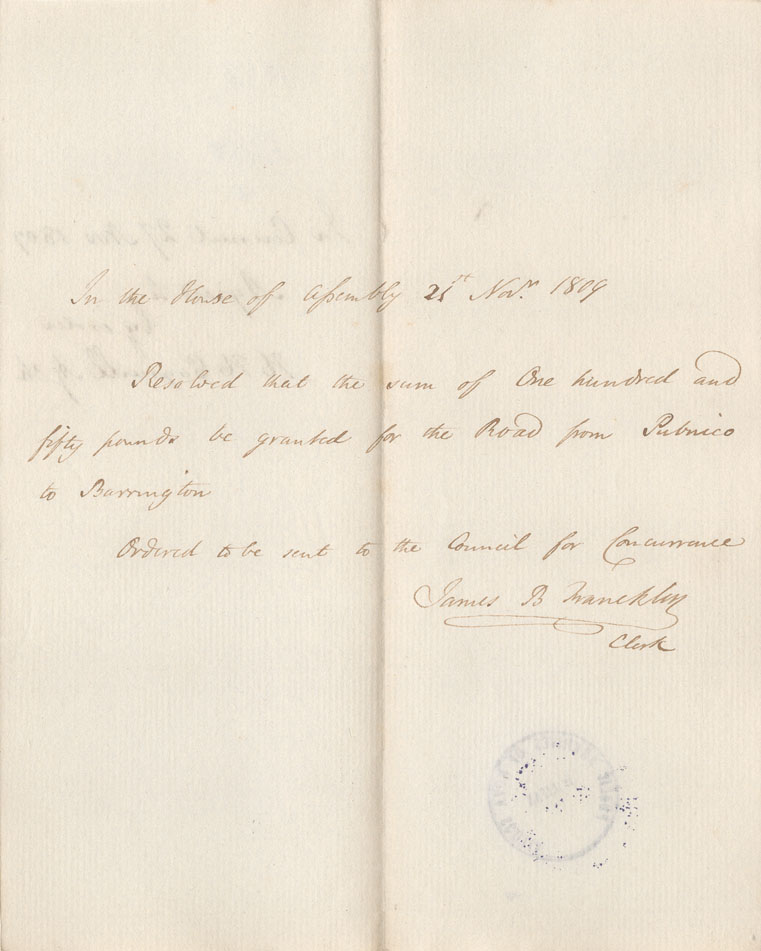 In the House of Assembly 21st Novr. 1809
Resolved that the sum of One hundred and
fifty pounds be granted for the Road from Pubnico
to Barrington
Ordered to be sent to the Council for Concurrence
James B Franckling
Clerk